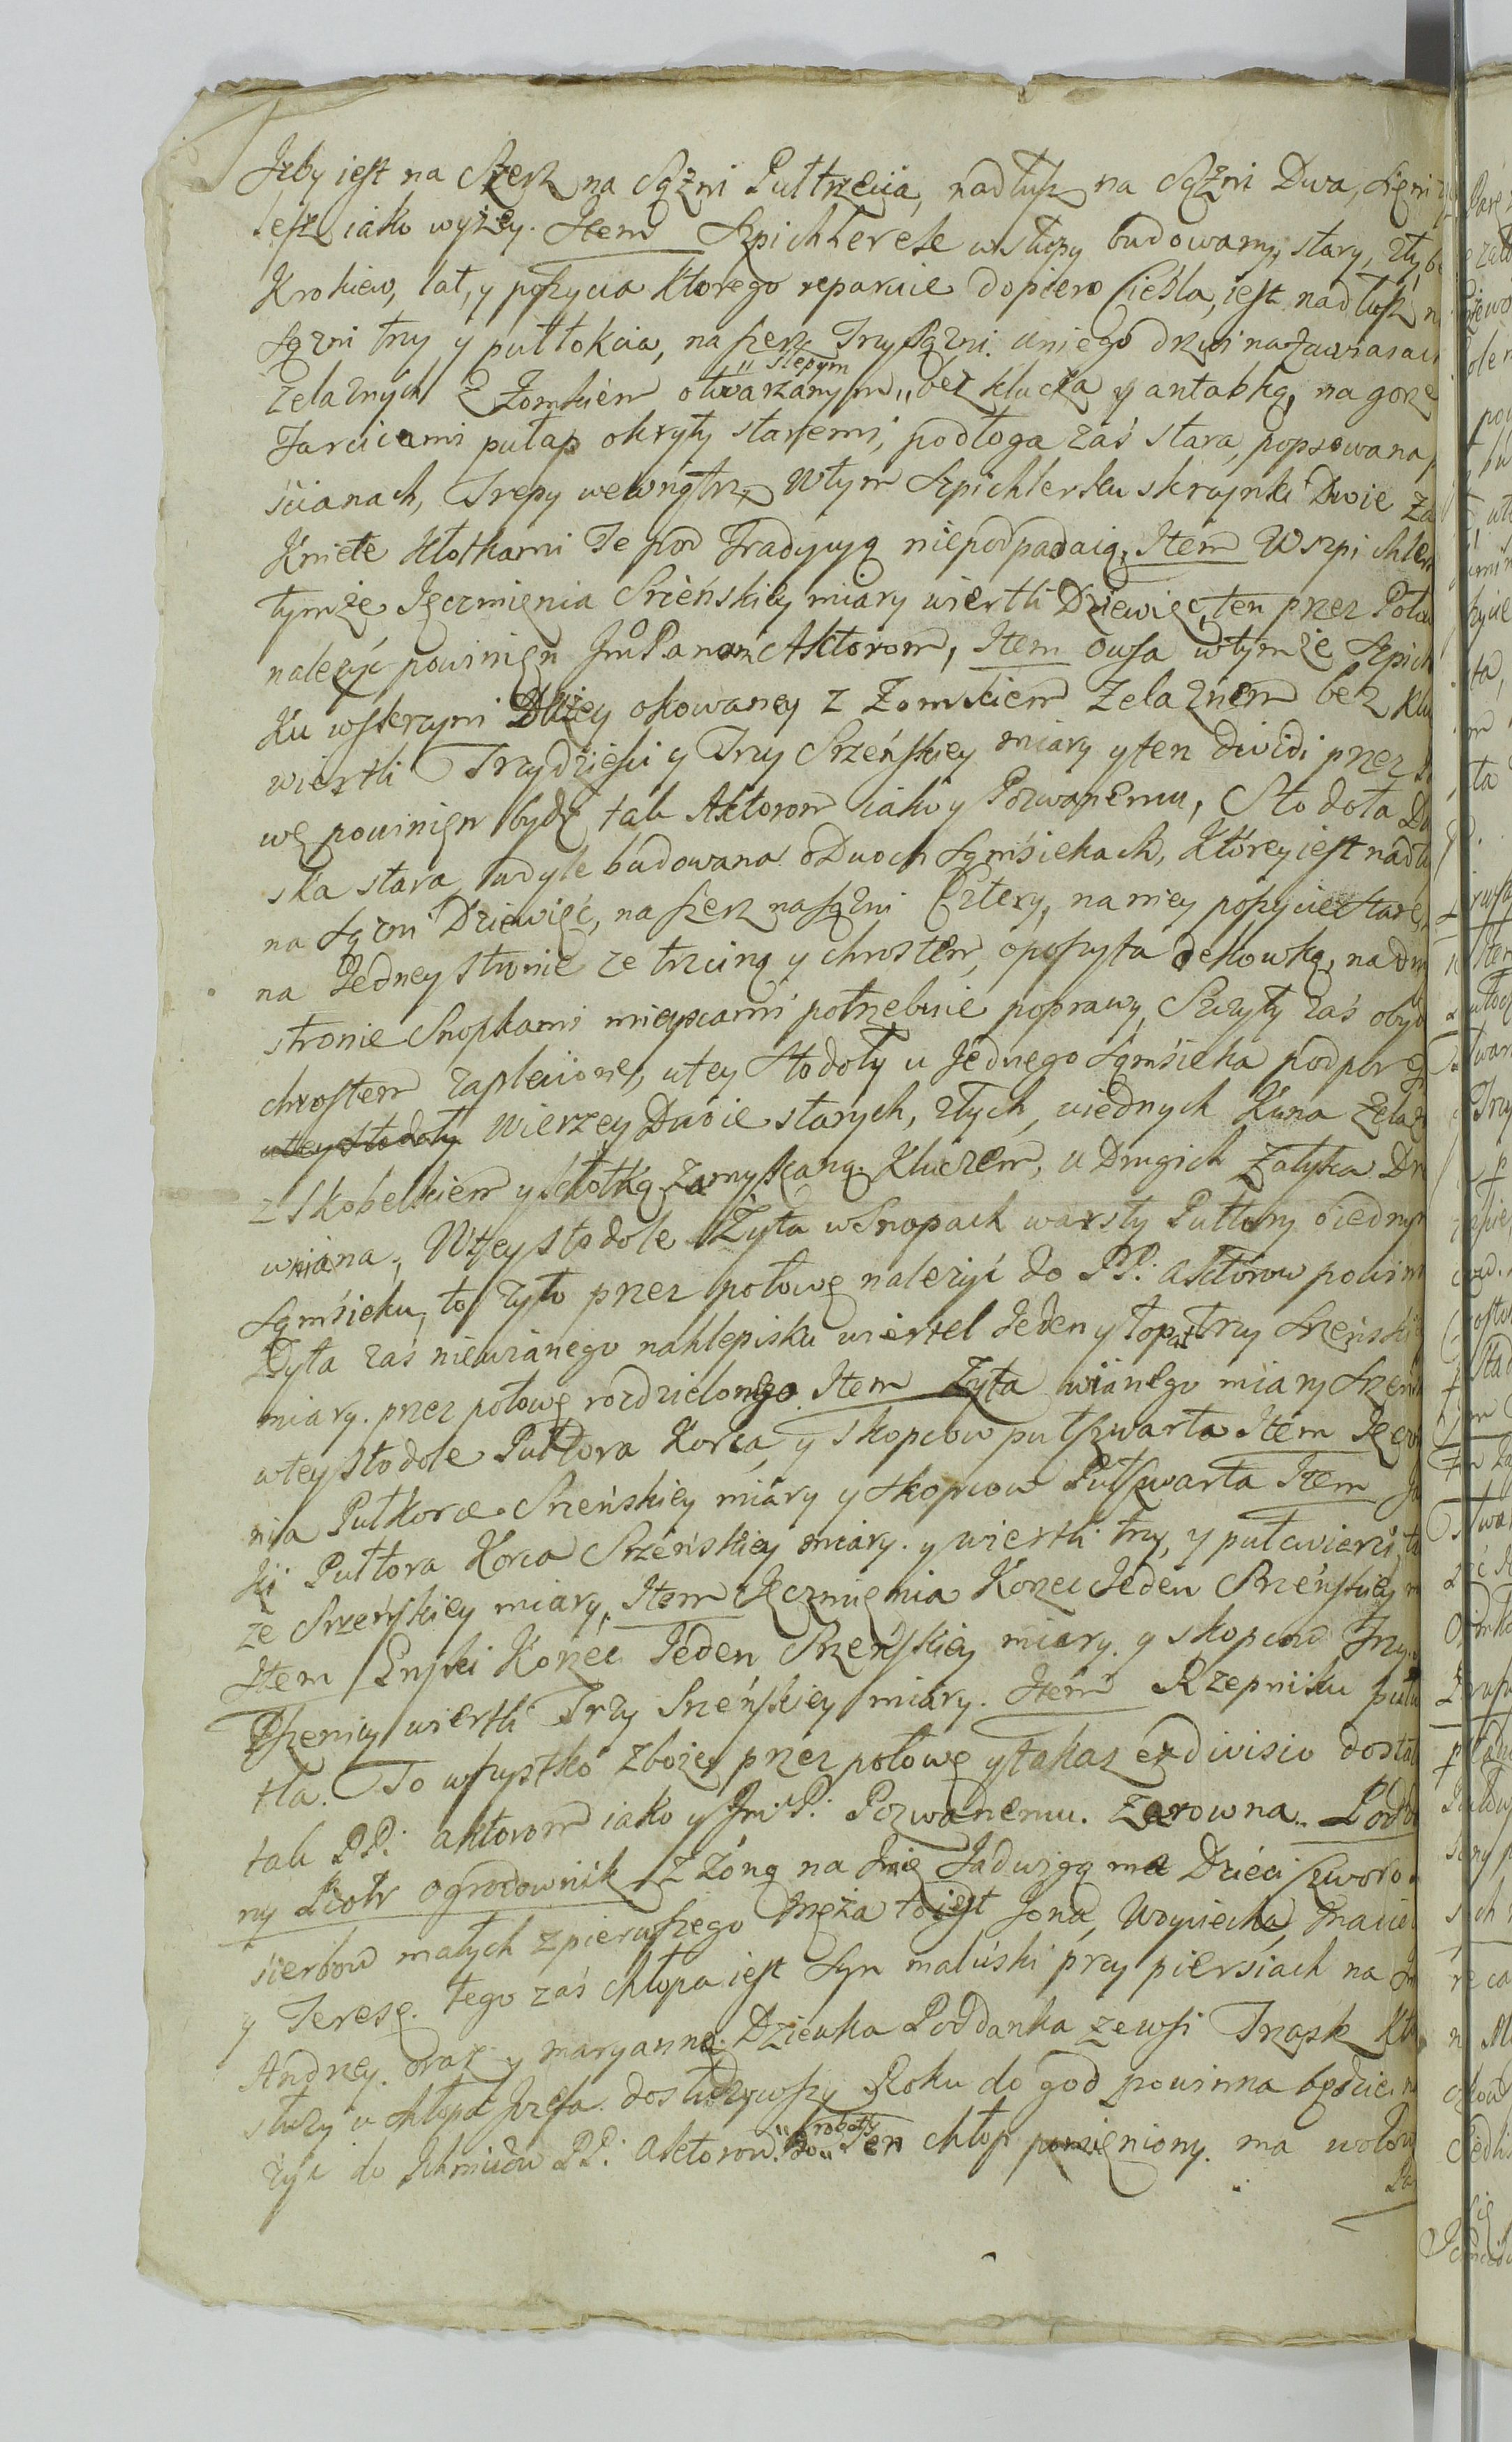 Izby iest na szerz na sążni Pułtrzecia, nadłusz na sążni Dwa, sięni
iesz iako wyzey. Item Szpichlerek w słupy budowany, stary, zły, be
Krokiew, łat, y poszycia ktorego reparuie dopiero Cieśla, iest nadłusz n
sązni trzy y pułłokcia, na szerz Trzy Sązni. uniego drzwi na zawiasach
zelaznych z Zomkiem otwaranym „slepym„ bez klucza y antabką, na gorze
Tarcicami pułap okryty staremi, podłoga zaś stara, popsowana p
ścianach, Trepy wewnątrz, Wtym Szpichlerku skrzynki Dwie Za
Kniete Kłotkami Te pod Tradycyą niepodpadaią, Item W szpichlerk
tymże Jęczmienia Srzeńskiey miary wiertli Dziewięć, ten przez Połow
nalezyć powinien JmPanom Aktorom, Item Owsa wtymże Szpich
Ku wskrzyni Dużey okowaney z Zomkiem Zelaznem bez Klu
wiertli Trzydzieści y Trzy Srzeńskiey miary yten dividi przez
wę powinien bydź tak Aktorom iako y Pozwanemu, Stodoła D
ska stara, wdyle budowana oDwoch Sąmsiekach, Ktorey iest nadłu
na Sązni Dziewięć, na szerz na sązni Cztery, na niey poszycie stare,
na Jedney stronie ze trzciną y chrostem, oposzyta dekowką, na dr
stronie Snopkami mieyscami potrzebuie poprawy, Szczyty zaś oby
chrostem zaplecione, utey Stodoły u Jednego Sąmsieka podpor
uteystodoły Wierzey Dwoie starych, złych, uiednych Kuna Zelaz
z skobelkiem y kłotką zamyskaną Kluczem, u Drugich Zatyka Dr
wniana, Wtey stodole Zyta wSnopach warsty Pułtory oiednym
Sąmsieku, to zyto przez połowę nalezyć do PP: aktorow powin
Zyta zaś niewianego naklepisku wiertel Jeden y łopat Trzy Srzeńskie
miary. przez połowę rozdzielonego. Item Zyta wianego miary Srzeńs
wtey stodole Pułtora Korca, y skopcow pułczwarta Item Jęczm
nia Pułkorca Srzeńskiey miary y skopcow Pułczwarta Item
ki Pułtora Korca Srzeńskiey miary. y wiertli trzy, y pułcwierci,
ze Srzeńskiey miary, Item Jęczmięnia Korzec Jeden Srzeńskiey m
Item Korzec Jeden Srzeńskiey miary. y skopcow Trzy
Pszenicy wiertli Trzy Srzeńskiey miary. Item Rzepniku pułw
tla. To wszystko zboże przez połowę ytakaz exdivisio dostał
tak PP: aktorom iako y Jm P: Pozwanemu. zarowna. Podda
ny Piotr ogrodownik z Zoną na Imię Jadwigą ma Dzieci czworo
sierbow małych zpierwszego męża toiest Jona, Woyciecha, Macie
y Teresę. tego zaś chłopa iest Syn maluski przy piersiach na Im
Andrzey. oraz y maryanna Dziewka Poddanka zewsi Trzask Kto
słuzy u chłopa Jozefa. dosłuzywszy Roku do god powinna będzie n
zyć do Ichmciow PP: Aktorow. do „roboty„ Ten chłop pomięniony. ma wołow
Par